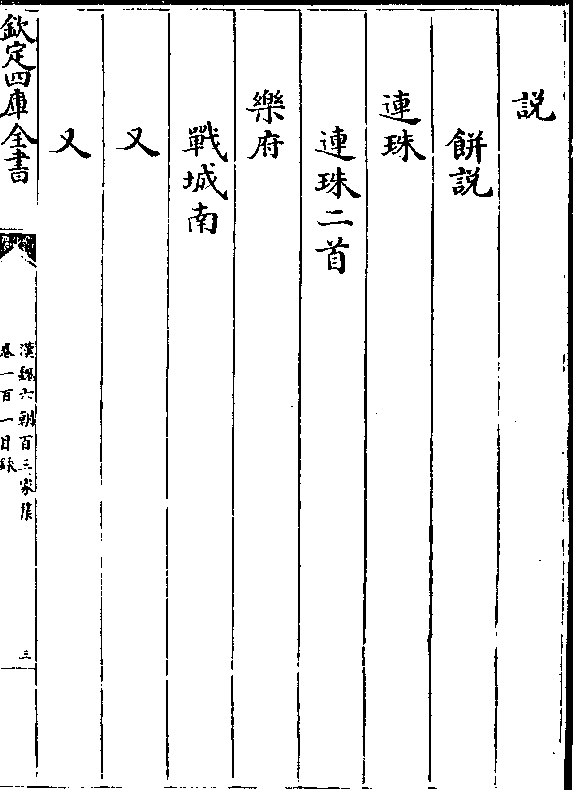 説
餅説
連珠
連珠二首
樂府
戰城南
又
又
欽定四庫全書
漢魏六朝百三家集
卷一百一目録
三